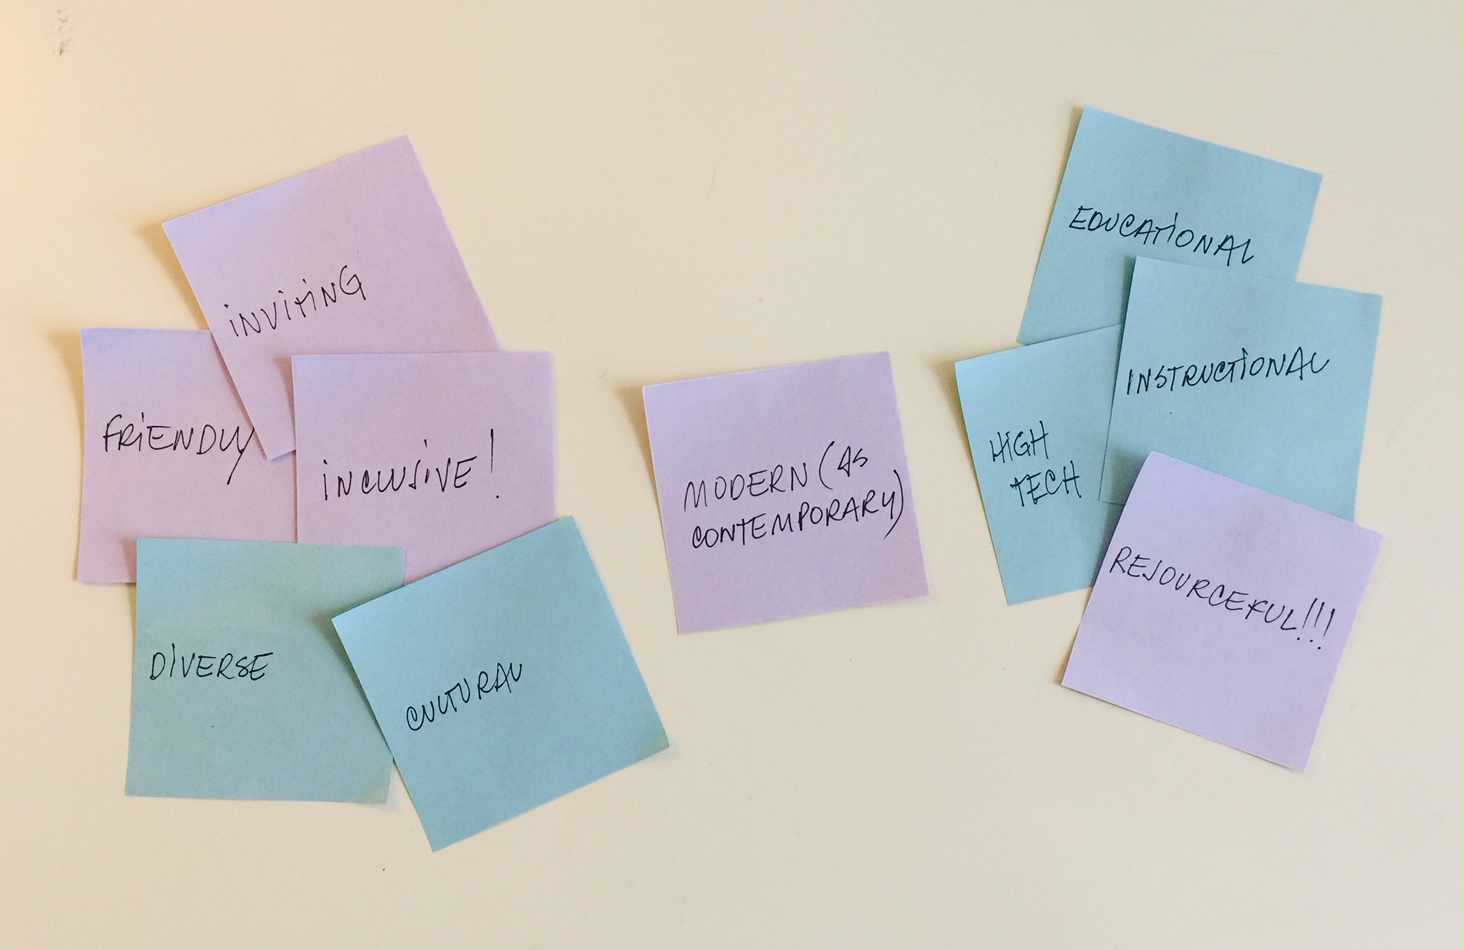 INVITING
FRIENDLY
INCLUSIVE!
DIVERSE
CULTURAL
MODERN (AS
CONTEMPORARY)
EDUCATIONAL
INSTRUCTIONAL
HIGH
TECH
RESOURCEFUL!!!